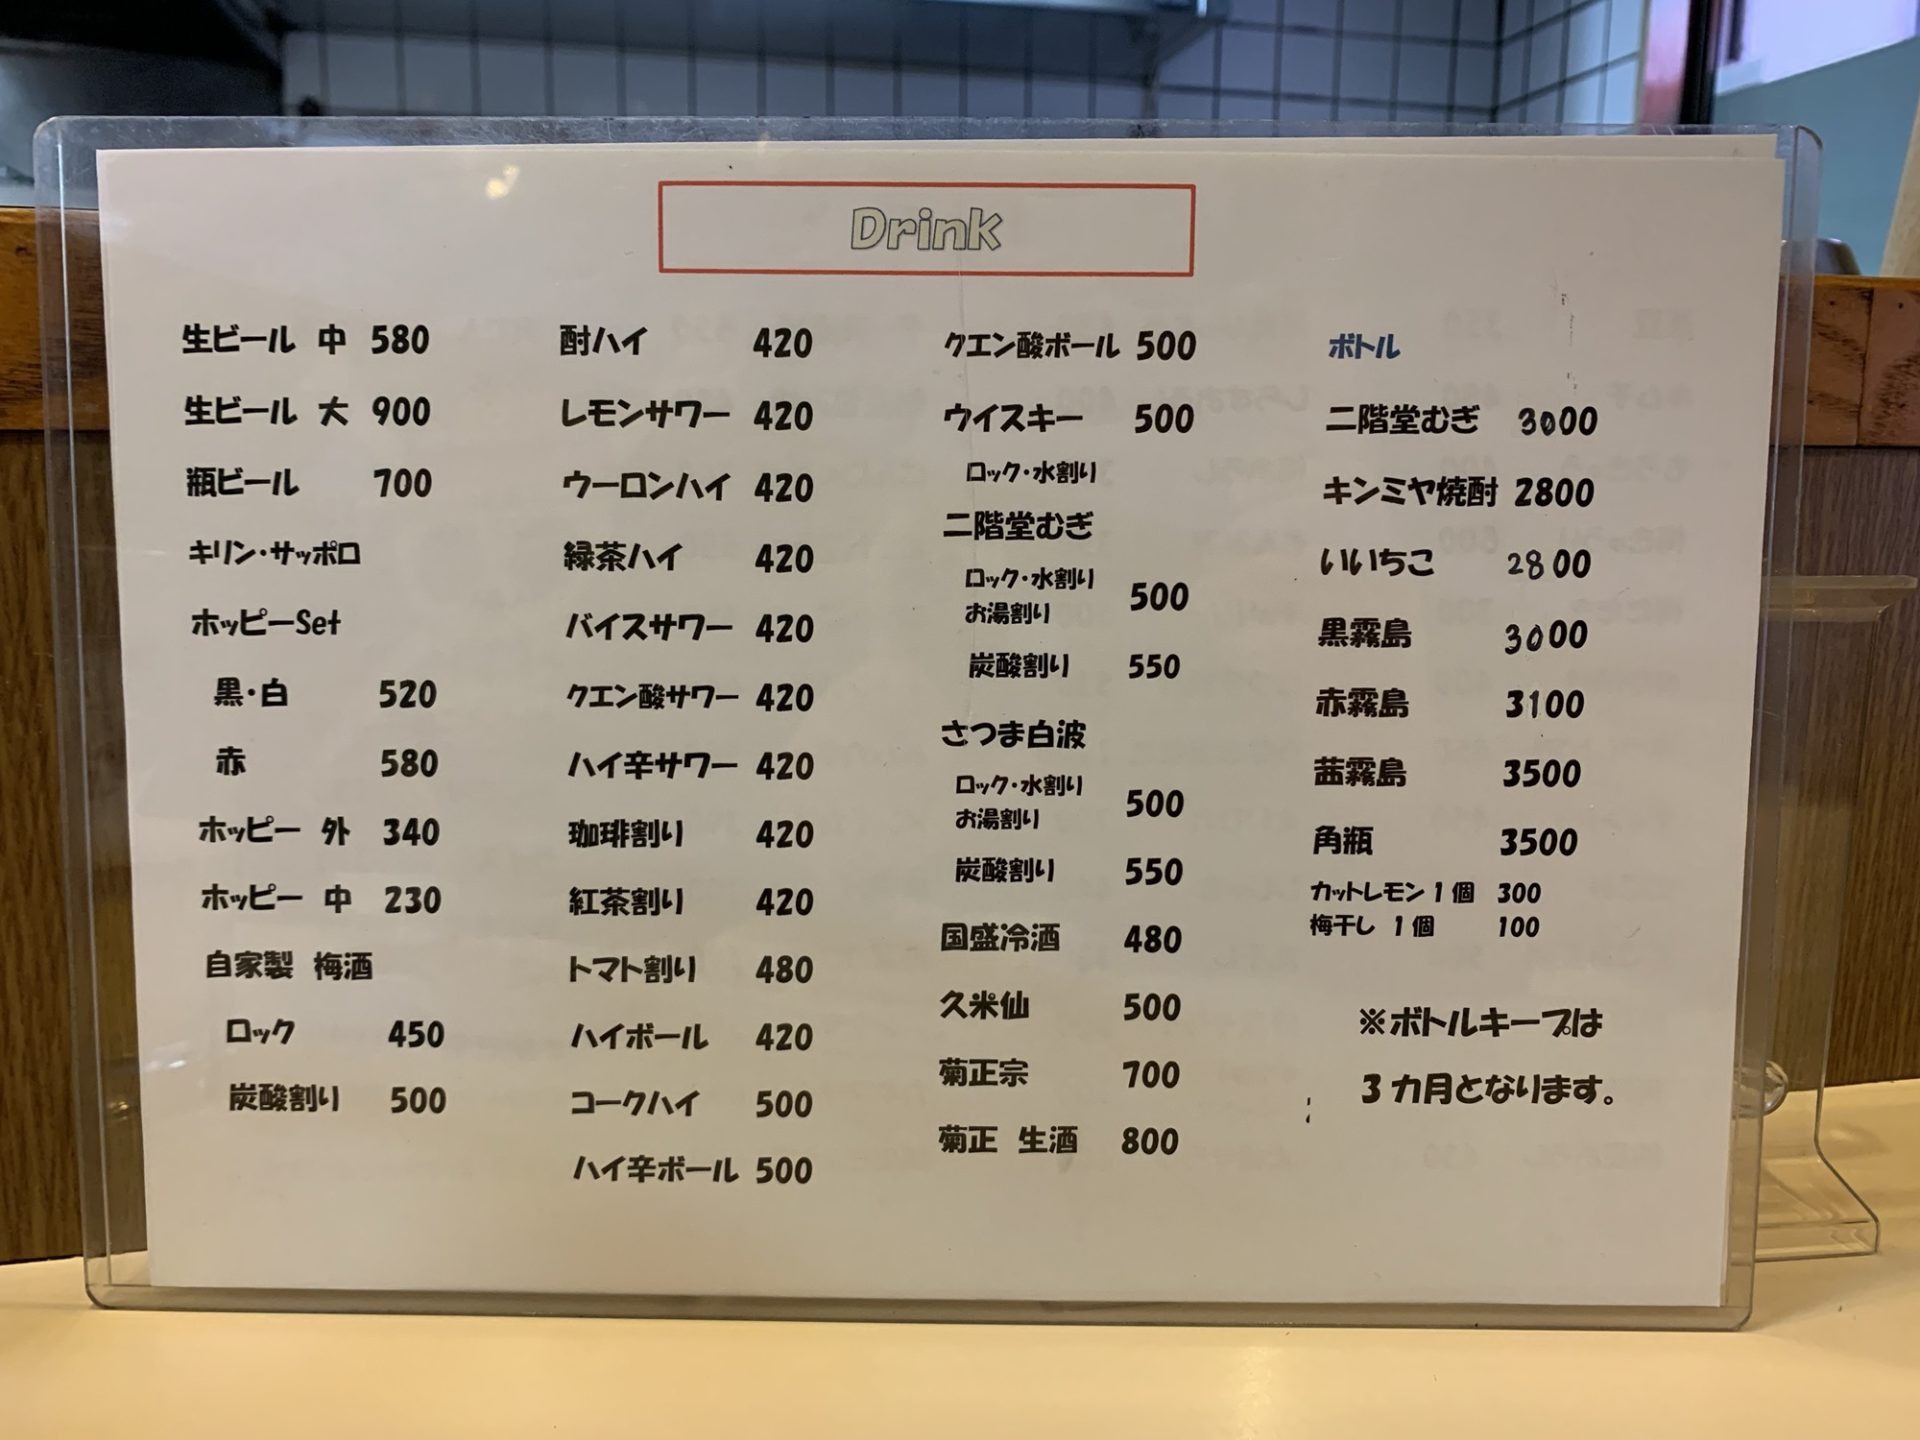 Drink
生ビール 中 580
生ビール 大 900
瓶ビール 700
キリン・サッポロ
ホッピーSet
黒・白 520
赤 580
ホッピー 外 340
ホッピー 中 230
自家製 梅酒
ロック 450
炭酸割り 500
酎ハイ 420
レモンサワー 420
ウーロンハイ 420
緑茶ハイ 420
バイスサワー 420
クエン酸サワー 420
ハイ辛サワー 420
珈琲割り 420
紅茶割り 420
トマト割り 480
ハイボール 420
コークハイ 500
ハイ辛ボール 500
クエン酸ボール 500
ウイスキー 500
ロック・水割り
二階堂むぎ
ロック・水割り
お湯割り 500
炭酸割り 550
さつま白波
ロック・水割り
お湯割り 500
炭酸割り 550
国盛冷酒 480
久米仙 500
菊正宗 700
菊正 生酒 800
ボトル
二階堂むぎ 3000
キンミヤ焼酎 2800
いいちこ 2800
黒霧島 3000
赤霧島 3100
茜霧島 3500
角瓶 3500
カットレモン 1 個 300
梅干し 1 個 100
※ボトルキープは
3 カ月となります。